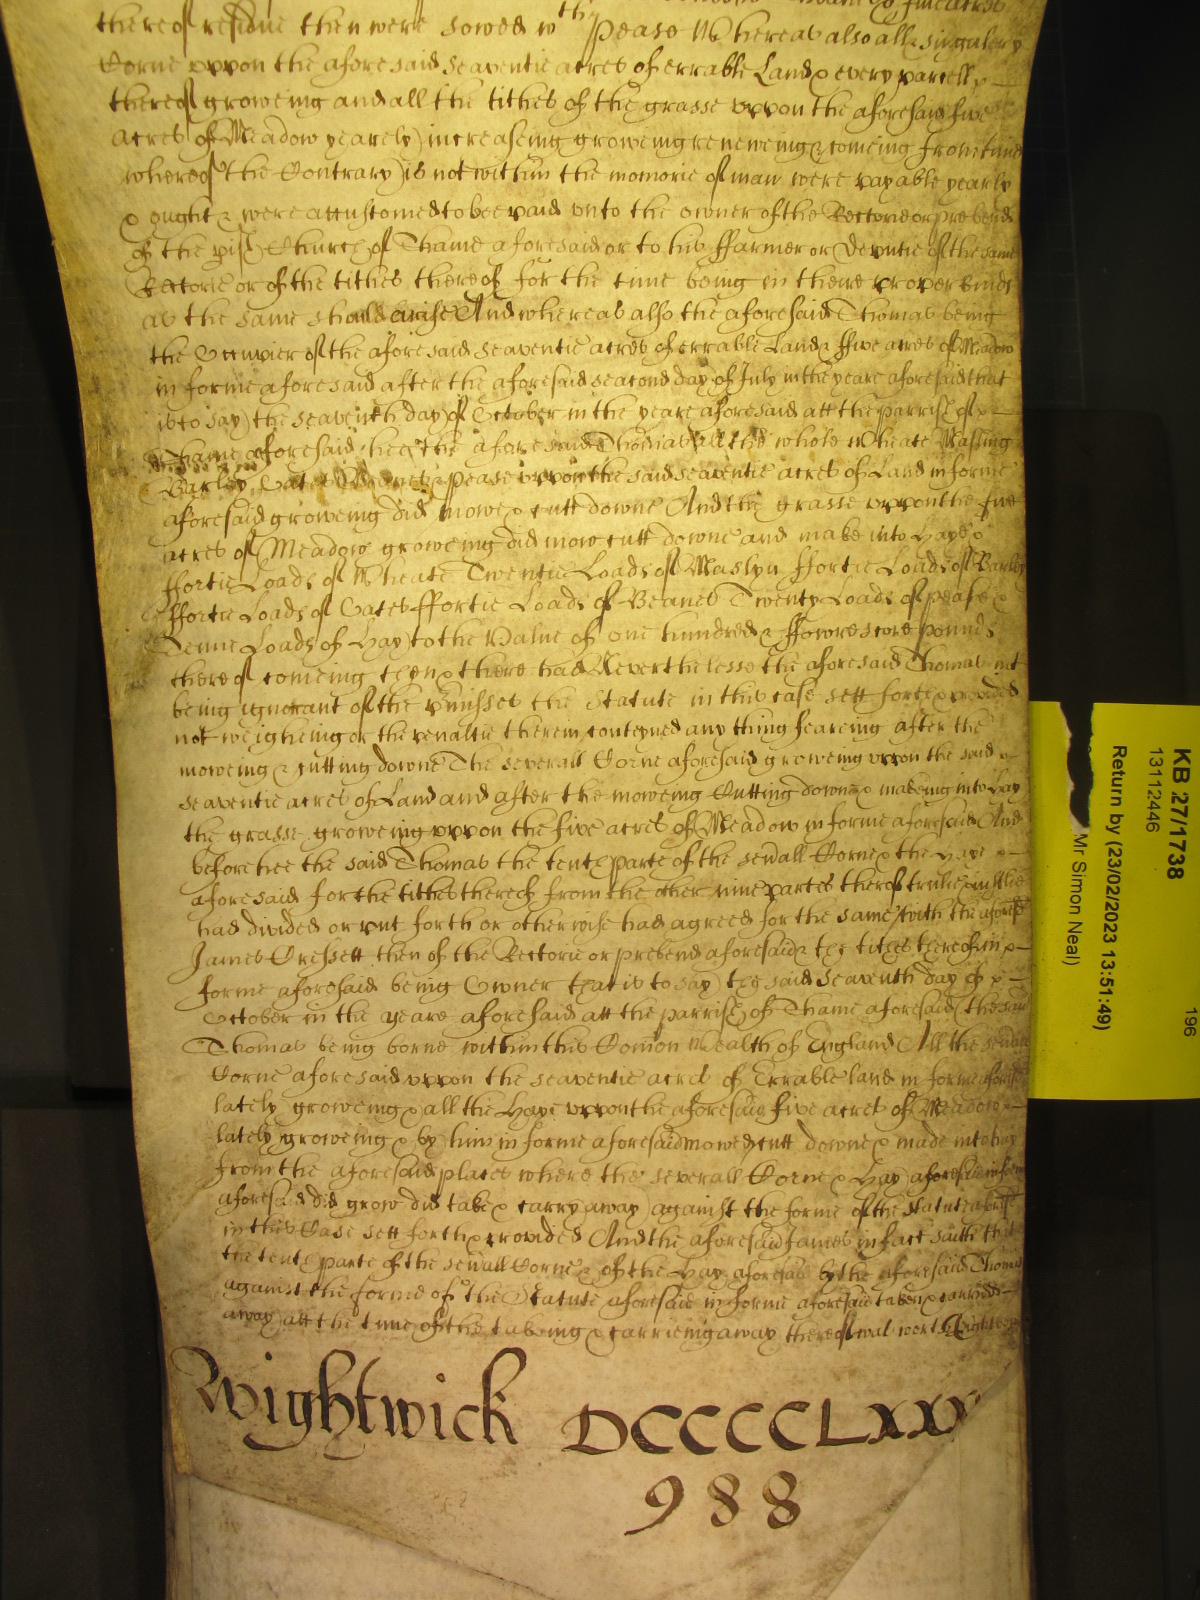 thereof residue then were sowed wth Pease Whereas also all & singuler ye
Corne uppon the aforesaid seaventie acres of errable Land & every parcell
thereof groweing and all the tithes of the grasse uppon the aforesaid five
acres of Meadow yearely increaseing groweing reneweing & comeing from time
whereof the Contrary is not within the memorie of man were payable yearly
& ought & were accustomed to bee paid unto the owner of the Rectorie or prebend
of the pish Church of Thame aforesaid or to his ffarmer or deputie of the same
Rectorie or of the tithes thereof for the time being in theire proper kinds
as the same should arise And whereas also the aforesaid Thomas being
the Occupier of the aforesaid seaventie acres of errable Land & ffive acres of Meadow
in forme aforesaid after the aforesaid second day of July in the yeare aforesaid that
is to say the seaventh day of October in the yeare aforesaid att the parrish of
Thame aforesaid hee the aforesaid Thomas all the whole Wheate Masling
Barley Oates Beanes & Pease uppon the said seaventie acres of Land in forme
aforesaid groweing did mowe & cutt downe And the grasse uppon the five
acres of Meadow groweing did mow cutt downe and make into Haye &
ffortie Loads of Wheate Twentie Loads of Maslyn ffortie Loads of Barley
ffortie Loads of Oates ffortie Loads of Beanes Twenty Loads of pease &
Tenne Loads of Hay to the Value of one hundred & ffowrescore pounds
thereof comeing then & there had Neverthelesse the aforesaid Thomas not
being ignorant of the p'misses the Statute in this case sett forth & provided
not weigheing or the penaltie therein conteyned any thing feareing after the
moweing & cutting downe The severall Corne aforesaid groweing uppon the said
seaventie acres of Land and after the moweing Cutting downe & makeing into Hay
the grasse groweing uppon the five acres of Meadow in forme aforesaid And
before hee the said Thomas the tenth parte of the sev'all Corne & the Haye
aforesaid for the tithes thereof from the other nine partes thereof trulie & justlie
had divided or putt forth or otherwise had agreed for the same with the aforesd
James Cressett then of the Rectorie or prebend aforesaid & the tithes thereof in
forme aforesaid being Owner that is to say the said seaventh day of
October in the yeare aforesaid att the parrish of Thame aforesaid the said
Thomas being borne within this Comon Wealth of England All the sev'all
Corne aforesaid uppon the seaventie acres of Errable land in forme aforesd
lately groweing & all the Haye uppon the aforesaid five acres of Meadow
lately groweing & by him in forme aforesaid mowed cutt downe & made into hay
from the aforesaid places where the severall Corne & Hay aforesaid in forme
aforesaid did grow did take & carry away against the forme of the statute aforesd
in this Case sett forth & provided And the aforesaid James in fact saith that
the tenth parte of the sev'all Corne & of the Hay aforesaid by the aforesaid Thomas
against the forme of the Statute aforesaid in forme aforesaid taken & carried
away att the time of the takeing & carrieing away thereof was worth Eighteene
Wightwick DCCCCCLXXX
988
KB 27/1738
13112446
Return by (23/02/2023 13:51:49)
Mr Simon Neal)
196